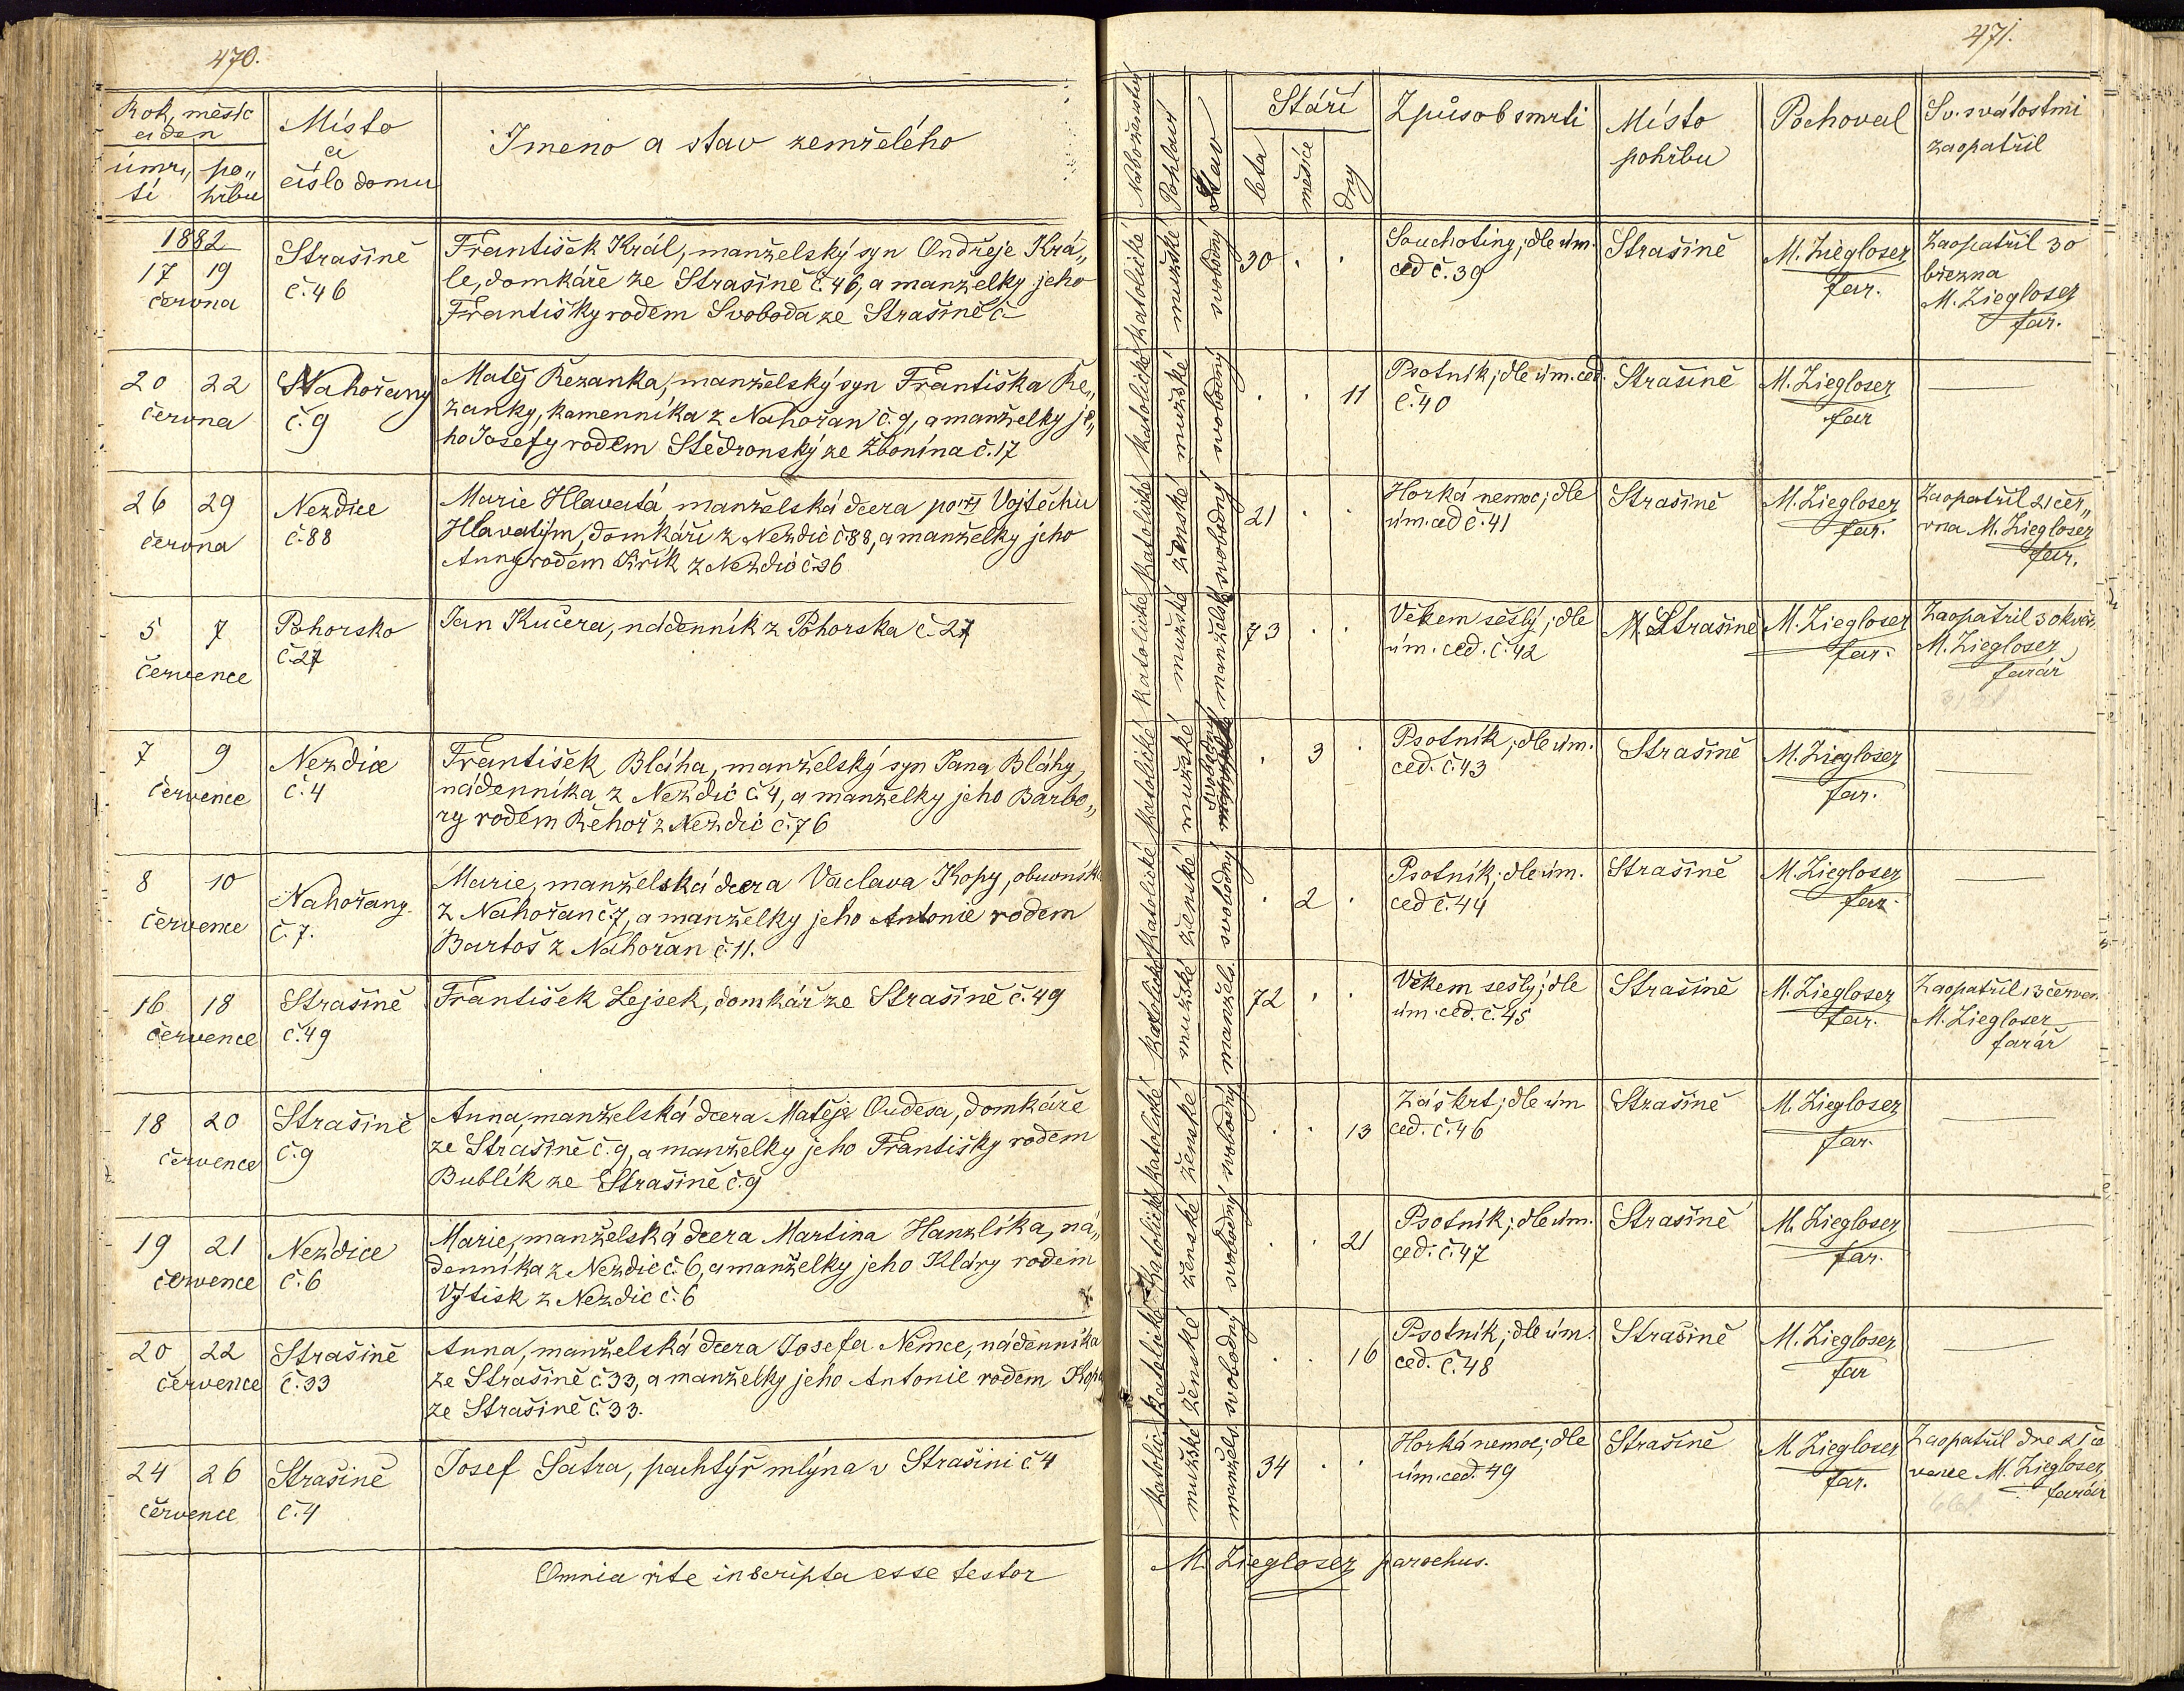 470.
Rok, měsíc
a den
úmr„
tí
po„
hřbu
Místo
a
číslo domu
Jmeno a stav zemřelého
1882
17 19
června
Strašině
č.46
František Král, manželský syn Ondřeje Krá„
le, domkáře ze Strašině č.46, a manželky jeho
Františky rodem Svoboda ze Strašině č
20 22
června
Nahořany
č.9
Matěj Řezanka, manželský syn Františka Ře„
zanky, kamenníka z Nahořan č.9, a manželky je„
ho Josefy rodem Štědronský ze Zbonína č.17
26 29
června
Nezdice
č.88
Marie Hlavatá, manželská dcera po Vojtěchu
Hlavatým, domkáři z Nezdic č.88, a manželky jeho
Anny rodem Jiřík z Nezdic č.36
5 7
července
Pohorsko
č.27
Jan Kučera, nádenník z Pohorska č.27
7 9
července
Nezdice
č.4
František Bláha, manželský syn Jana Bláhy,
nádenníka z Nezdic č.4, a manželky jeho Barbo„
ry rodem Řehoř z Nezdic č.76
8 10
července
Nahořany
č.7.
Marie, manželská dcera Vaclava Kopy, obuvník
z Nahořan č.7, a manželky jeho Antonie rodem
Bartoš z Nahořan č.11.
16 18
července
Strašině
č.49
František Lejsek, domkář ze Strašině č.49
18 20
července
Strašině
č.9
Anna, manželská dcera Matěje Oudesa, domkáře
ze Strašině č.9, a manželky jeho Františky rodem
Bublík ze Strašině č.9
19 21
července
Nezdice
č.6
Marie, manželská dcera Martina Hanzlíka, ná„
denníka z Nezdic č.6, a manželky jeho Kláry rodem
Vytisk z Nezdic č.6
20 22
července
Strašině
č.33
Anna, manželská dcera Josefa Němce, nádenníka
ze Strašině č.33, a manželky jeho Antonie rodem Kopa
ze Strašině č.33.
24 26
července
Strašině
č.4
Josef Šatra, pachtýř mlýna v Strašini č.4
Omnia rite inscripta esse testor
471.
Náboženství
Pohlaví
Stav
Stáří
leta
měsíce
dny
Způsob smrti
Místo
pohřbu
Pochoval
Sv. svátostmi
zaopatřil
katolické
mužské
svobodný
30 . .
Souchotiny; dle úm.
ced č.39
Strašině
M. Ziegloser
far.
Zaopatřil 30
března
M. Ziegloser
far.
katolické
mužské
svobodný
. . 11
Psotník; dle úm. ced.
č.40
Strašině
M. Ziegloser
far
katolické
ženské
svobodný
21 . .
Horká nemoc; dle
úm. ced č.41
Strašině
M. Ziegloser
far.
Zaopatřil 21 čer„
vna M. Ziegloser
far.
katolické
mužské
manželský
73 . .
Věkem sešlý; dle
úm. ced. č.42
Strašině
M. Ziegloser
far.
Zaopatřil 30 květ.
M. Ziegloser
farář
katolické
mužské
svobodný
. 3 .
Psotník; dle úm.
ced. č.43
Strašině
M. Ziegloser
far.
katolické
ženské
svobodný
. 2 .
Psotník; dle úm.
ced č.44
Strašině
M. Ziegloser
far.
katolické
mužské
manžels.
72 . .
Věkem sešlý; dle
úm. ced. č.45
Strašině
M. Ziegloser
far.
Zaopatřil 13 červen
M. Ziegloser
farář
katolické
ženské
svobodný
. . 13
Záškrt; dle úm
ced. č.46
Strašině
M. Ziegloser
far.
katolické
ženské
svobodný
. . 21
Psotník; dle úm.
ced. č.47
Strašině
M. Ziegloser
far.
katolické
ženské
svobodný
. . 16
Psotník; dle úm.
ced. č.48
Strašině
M. Ziegloser
far
katolic.
mužské
manžels
34 . .
Horká nemoc; dle
úm. ced. 49
Strašině
M. Ziegloser
far.
Zaopatřil dne 21 če
vence M. Ziegloser
farář
M. Ziegloser parochus.